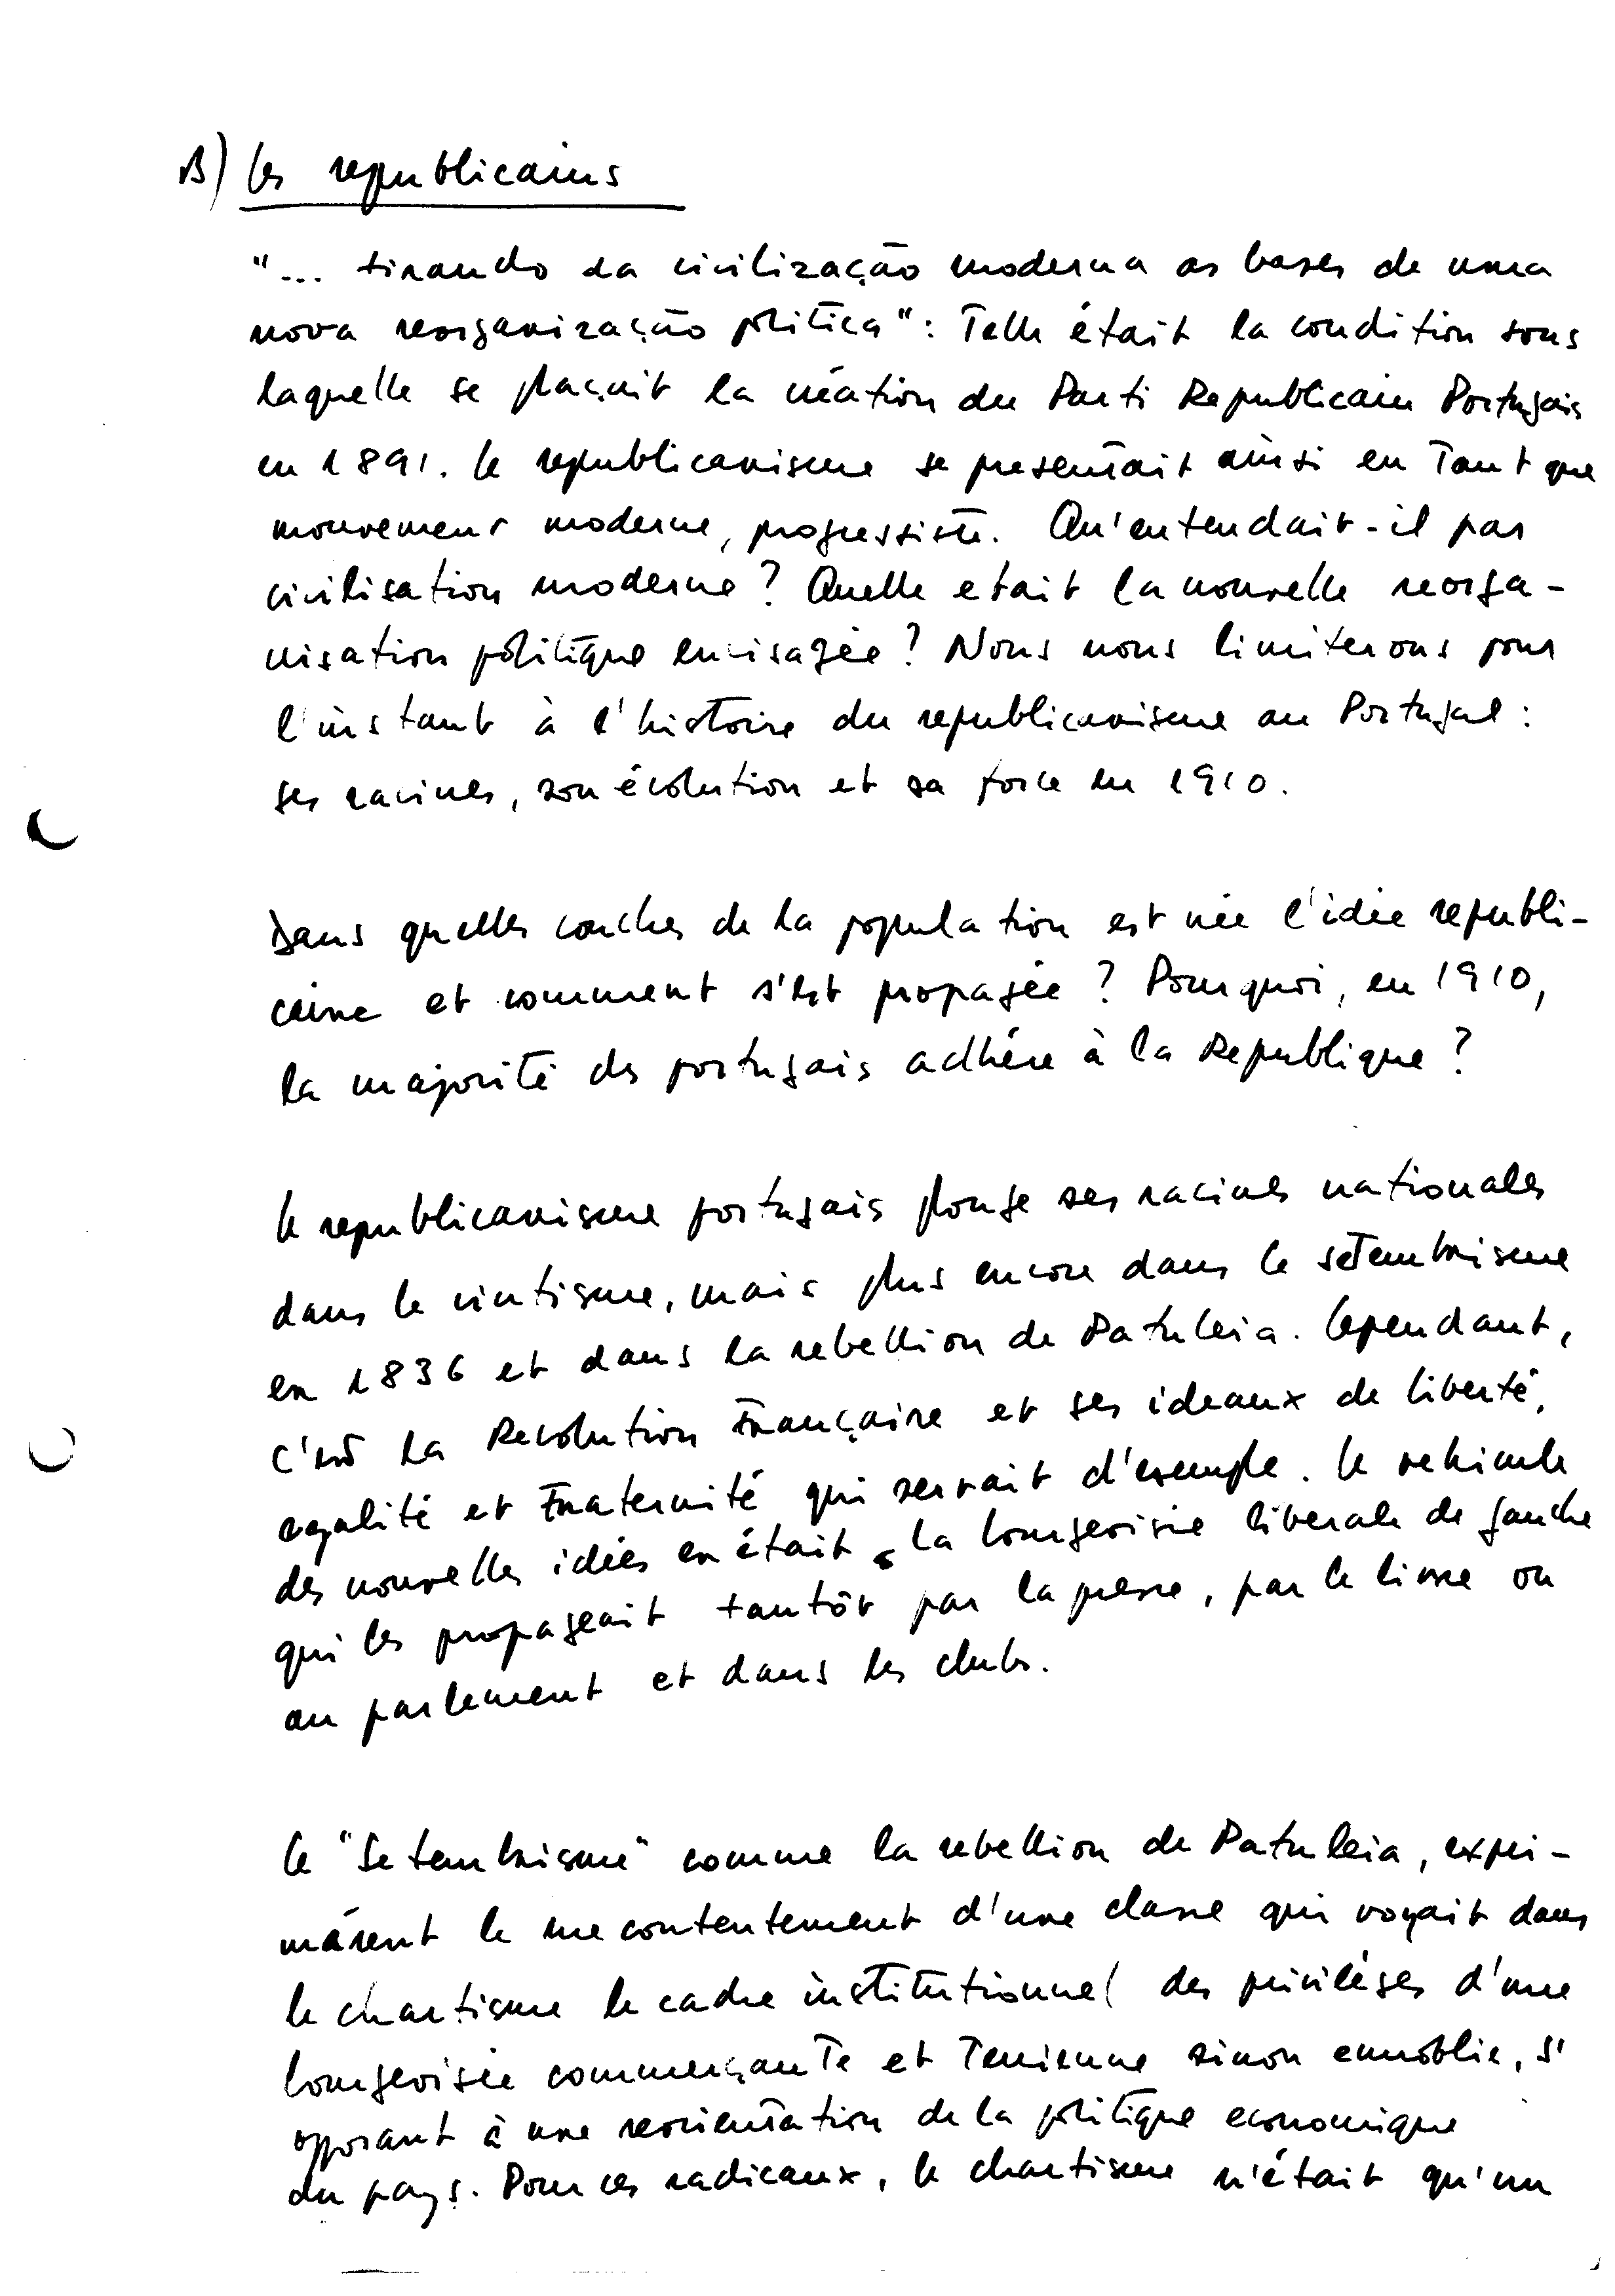 B) Les republicains
"... tirando da civilização moderna as bases de uma
nova reorganização politica": Telle était la condition sous
laquelle se plaçait la création du Parti Republicain Portugais
en 1891. Le republicanisme se presentait ainsi en tant que
mouvement moderne, progressiste. Qu'entendait-il par
civilisation moderne? Quelle etait la nouvelle reorga-
nisation politique envisagée? Nous nous limiterons pour
l'instant à l'histoire du republicanisme au Portugal:
ses racines, son évolution et sa force en 1910.
Dans quelles couches de la population est née l'idée republi-
caine et comment s'est propagée? Pourquoi, en 1910,
la majorité des portugais adhère à la Republique?
Le republicanisme portugais plonge ses racines nationales
dans le vintisme, mais plus encore dans le setembrisme
en 1836 et dans la rebellion de Patuleia. Cependant,
c'est la Revolution Française et ses ideaux de liberté,
egalité et Fraternité qui servait d'exemple. Le vehicule
des nouvelles idées en était la bourgeoisie liberale de gauche
qui les propageait tantôt par la presse, par le livre ou
au parlement et dans les clubs.
Le "Setembrisme" comme la rebellion de Patuleia, expri-
mèrent le mecontentement d'une classe qui voyait dans
le chartisme le cadre institutionnel des privilèges d'une
bourgeoisie commerçante et terrienne sinon ennoblie, s'
opposant à une reorientation de la politique economique
du pays. Pour ces radicaux, le chartisme n'était qu'un